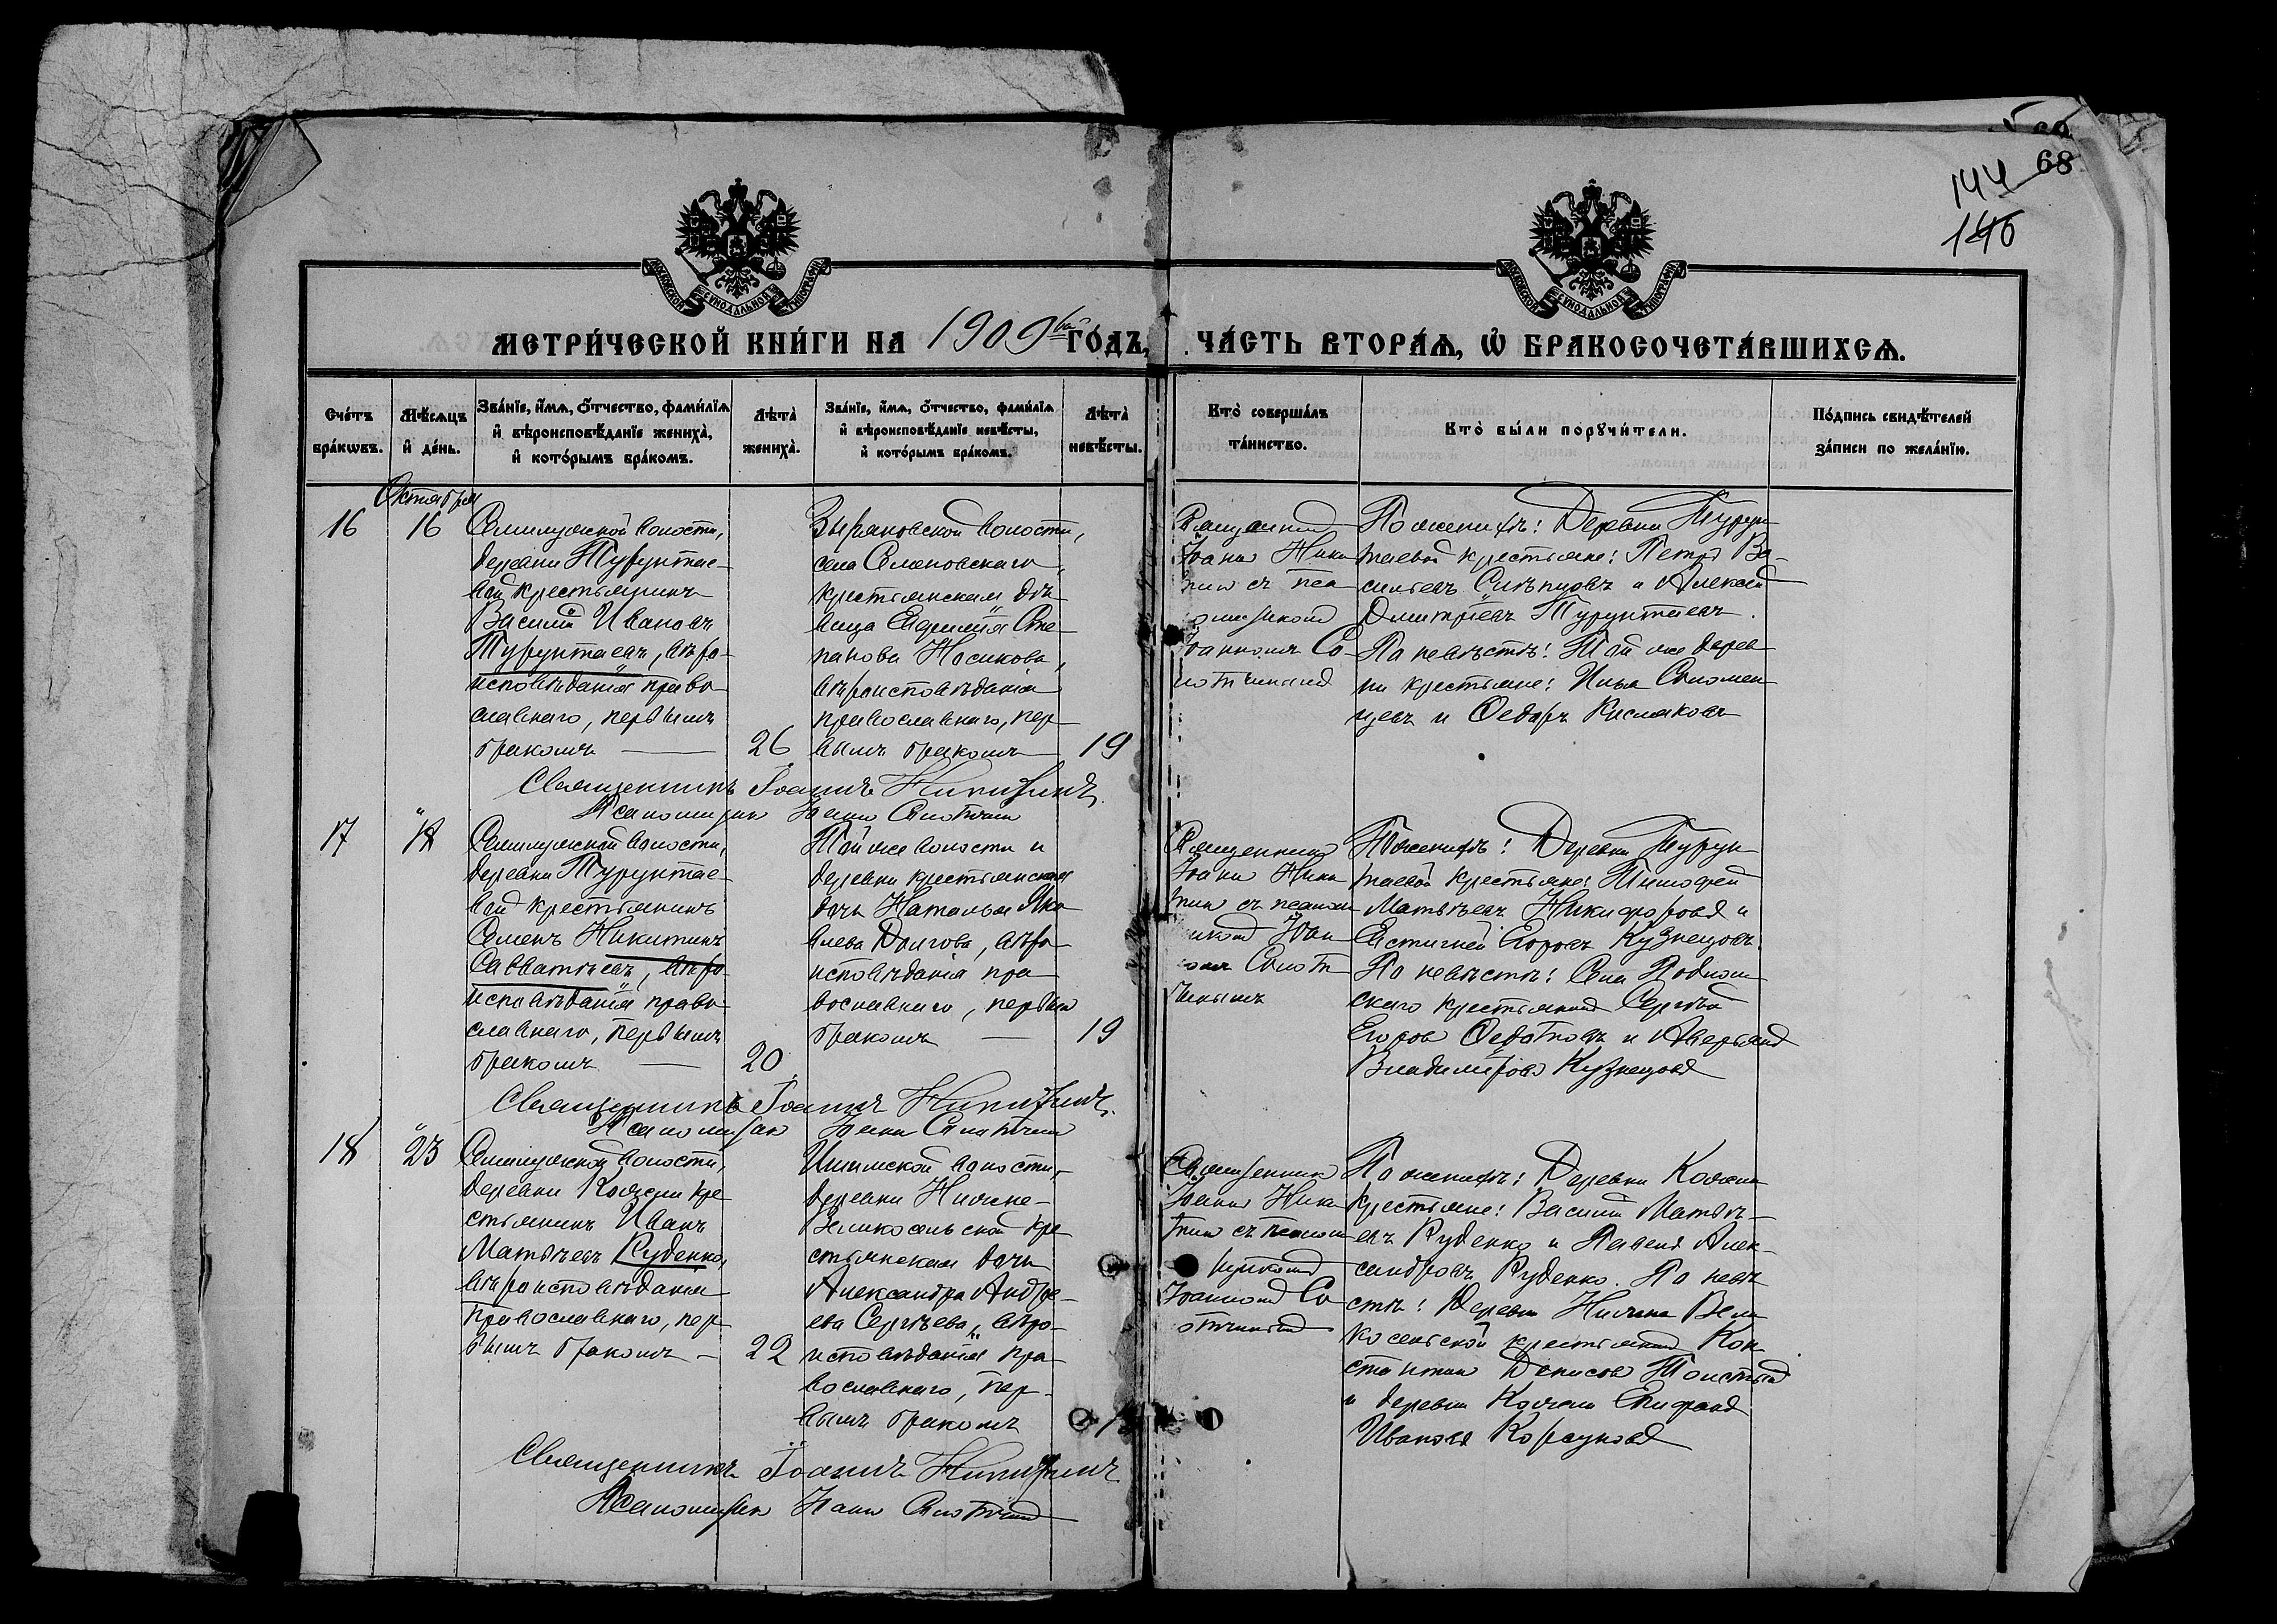 68
144
146
МОСКОВСКОЙ СѴНОДАЛЬНОЙ ТИПОГРАФІИ
МОСКОВСКОЙ СѴНОДАЛЬНОЙ ТИПОГРАФІИ
МЕТРИ́ЧЕСКОЙ КНИ́ГИ НА 1909 ГО́ДЪ,
ЧА́СТЬ ВТОРА́Ѧ, Ѽ БРАКОСОЧЕТА́ВШИХСѦ.
Сче́тъ
бра́кѡвъ.
Мѣ́сѧцъ
и҆ де́нь.
Зва́нїе, и҆́мѧ, о҆́тчество, фами́лїѧ
и҆ вѣроисповѣ́данїе жениха̀,
и҆ кото́рымъ бра́комъ.
Лѣта̀
жениха̀.
Зва́нїе, и҆́мѧ, о҆́тчество, фами́лїѧ
и҆ вѣроисповѣ́данїе невѣ́сты,
и҆ кото́рымъ бра́комъ.
Лѣта̀
невѣ́сты.
Кто̀ соверша́лъ
та́инство.
Кто̀ бы́ли порꙋчи́тели.
По́дпись свидѣ́телей
за́писи по жела́нїю.
Октября
16
16
Семилужской волости,
деревни Турунтае-
вой крестьянинъ
Василій Ивановъ
Турунтаевъ, вѣро-
исповѣданія право-
славнаго, первымъ
бракомъ
26
Зырановской волости,
села Семеновскаго,
крестьянская дѣ-
вица Евдокія Сте-
панова Носикова,
вѣроисповѣданія
православнаго, пер-
вымъ бракомъ
19
Священникъ
Іоаннъ Ники-
тинъ съ пса-
ломщикомъ
Іоанномъ Со-
По женихѣ: Деревни Турун-
таевой крестьяне: Петръ Ва-
сильевъ Слѣпцовъ и Алексѣй
Дмитріевъ Турунтаевъ.
По невѣстѣ: Той же дерев-
ни крестьяне: Илья Соломен-
цевъ и Ѳедоръ Кисляковъ
Священникъ Іоаннъ Никитинъ.
Псаломщикъ Іоаннъ
17
Семилужской волости,
деревни Турунтае-
вой крестьянинъ
Семенъ Никитинъ
Савватѣевъ, вѣро-
исповѣданія право-
славнаго, первымъ
бракомъ
20
Той же волости и
деревни крестьянская
дочь Наталья Яко-
влева Долгова, вѣро-
исповѣданія пра-
вославнаго, первымъ
бракомъ
19
Священникъ
Іоаннъ Ники-
тинъ съ псалом-
щикомъ Іоан-
номъ
По женихѣ: Деревни Турун-
таевой крестьяне: Тимофей
Матвѣевъ Никифоровъ и
Евстигней Егоровъ Кузнецовъ.
По невѣстѣ: Села
крестьянинъ Сергѣй
Егоровъ Ѳедотовъ и Аверьянъ
Владиміровъ Кузнецовъ
Священникъ Іоаннъ Никитинъ.
Псаломщикъ Іоаннъ
18
23
Семилужской волости,
деревни Кожеми кре-
стьянинъ Иванъ
Матвѣевъ Руденко,
вѣроисповѣданія
православнаго, пер-
вымъ бракомъ
22
Ишимской волости,
деревни Нижне-
Великосельской кре-
стьянская дочь
Александра Андре-
ева Сергѣева, вѣро-
исповѣданія пра-
вославнаго, пер-
вымъ бракомъ
Священникъ
Іоаннъ Ники-
тинъ съ псалом-
щикомъ
Іоанномъ Со-
По женихѣ: Деревни
крестьяне: Василій Матвѣ-
евъ Руденко и Павелъ Алек-
сандровъ Руденко. По невѣ-
стѣ: Деревни Нижне Вели-
косельской крестьянинъ Кон-
стантинъ Денисовъ Толстый
и деревни Кожеми Епифанъ
Ивановъ Корсуновъ
Священникъ Іоаннъ Никитинъ
Псаломщикъ Іоаннъ